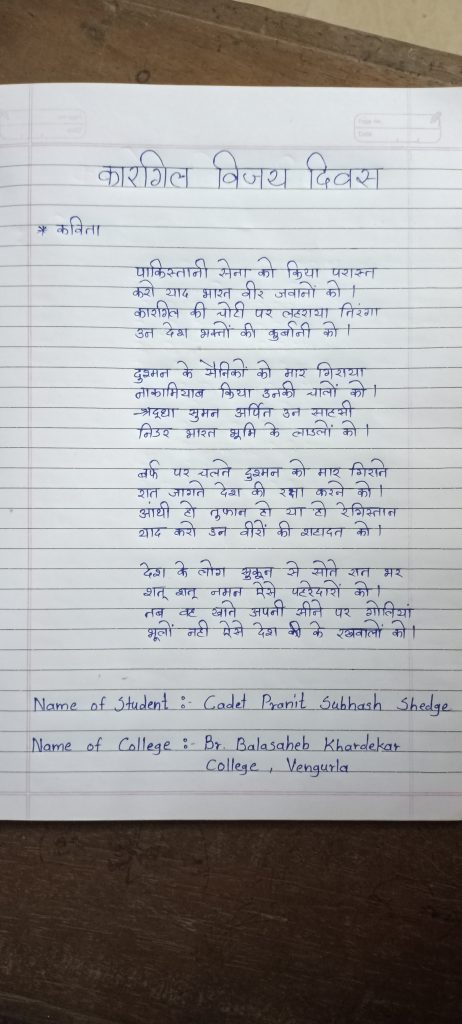 Page No.
Date
कारगिल विजय दिवस
* कविता
पाकिस्तानी सेना को किया परास्त
करो याद भारत वीर जवानों को ।
कारगिल की चोटी पर लहराया तिरंगा
उन देश भक्तों की कुर्बानी को ।
दुश्मन के सैनिकों को मार गिराया
नाकामियाब किया उनकी चालों को ।
श्रद्धा सुमन अर्पित उन साहसी
निडर भारत भूमि के लाडलों को ।
बर्फ पर चलते दुश्मन को मार गिराते
रात जागते देश की रक्षा करने को ।
आंधी हो तुफान हो या हो रेगिस्तान
याद करो उन वीरों की शहादत को ।
देश के लोग सुकून से सोते रात भर
शत् शत् नमन ऐसे पहरेदारों को ।
तब वह खाते अपनी सीने पर गोलियां
भूलों नही ऐसे देश के रखवालों को ।
Name of Student :- Cadet Pranit Subhash Shedge
Name of College :- Br. Balasaheb Khardekar
College , Vengurla